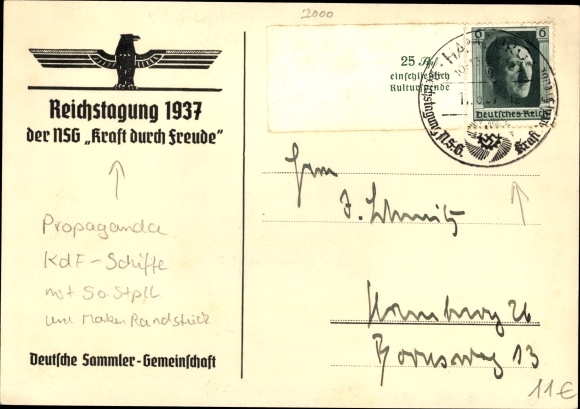 2000
Reichstagung 1937
der NSG „Kraft durch Freude"
Propaganda
KdF-Schiffe
mit So. Stpl
und Marken Randstück
Deutsche Sammler-Gemeinschaft
25 Rpf.
einschließlich
Kulturspende
6 6
Deutsches Reich
HAMBURG
Reichstagung N.S.G. Kraft durch
Herrn
J. Schmitz
Hamburg 26
Borusweg 13
11€